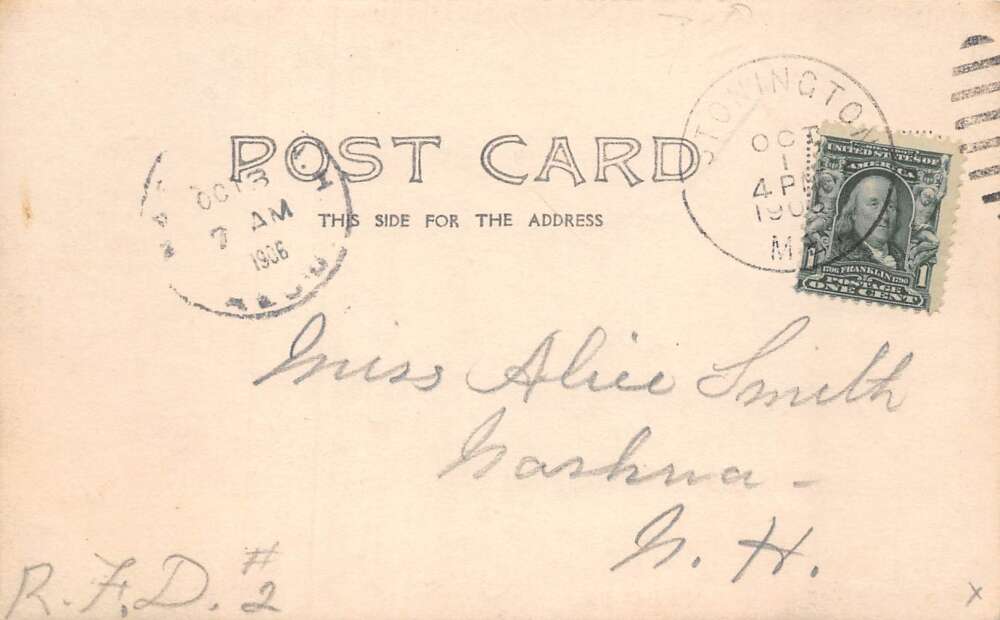 POST CARD
THIS SIDE FOR THE ADDRESS
STONINGTON
OCT
1
4 P
1906
M
OCT 3
7 AM
1906
UNITED STATES OF
AMERICA
1706 FRANKLIN 1790
1 1
POSTAGE
ONE CENT
Miss Alice Smith
Nashua -
N. H.
R. F. D. #2
x